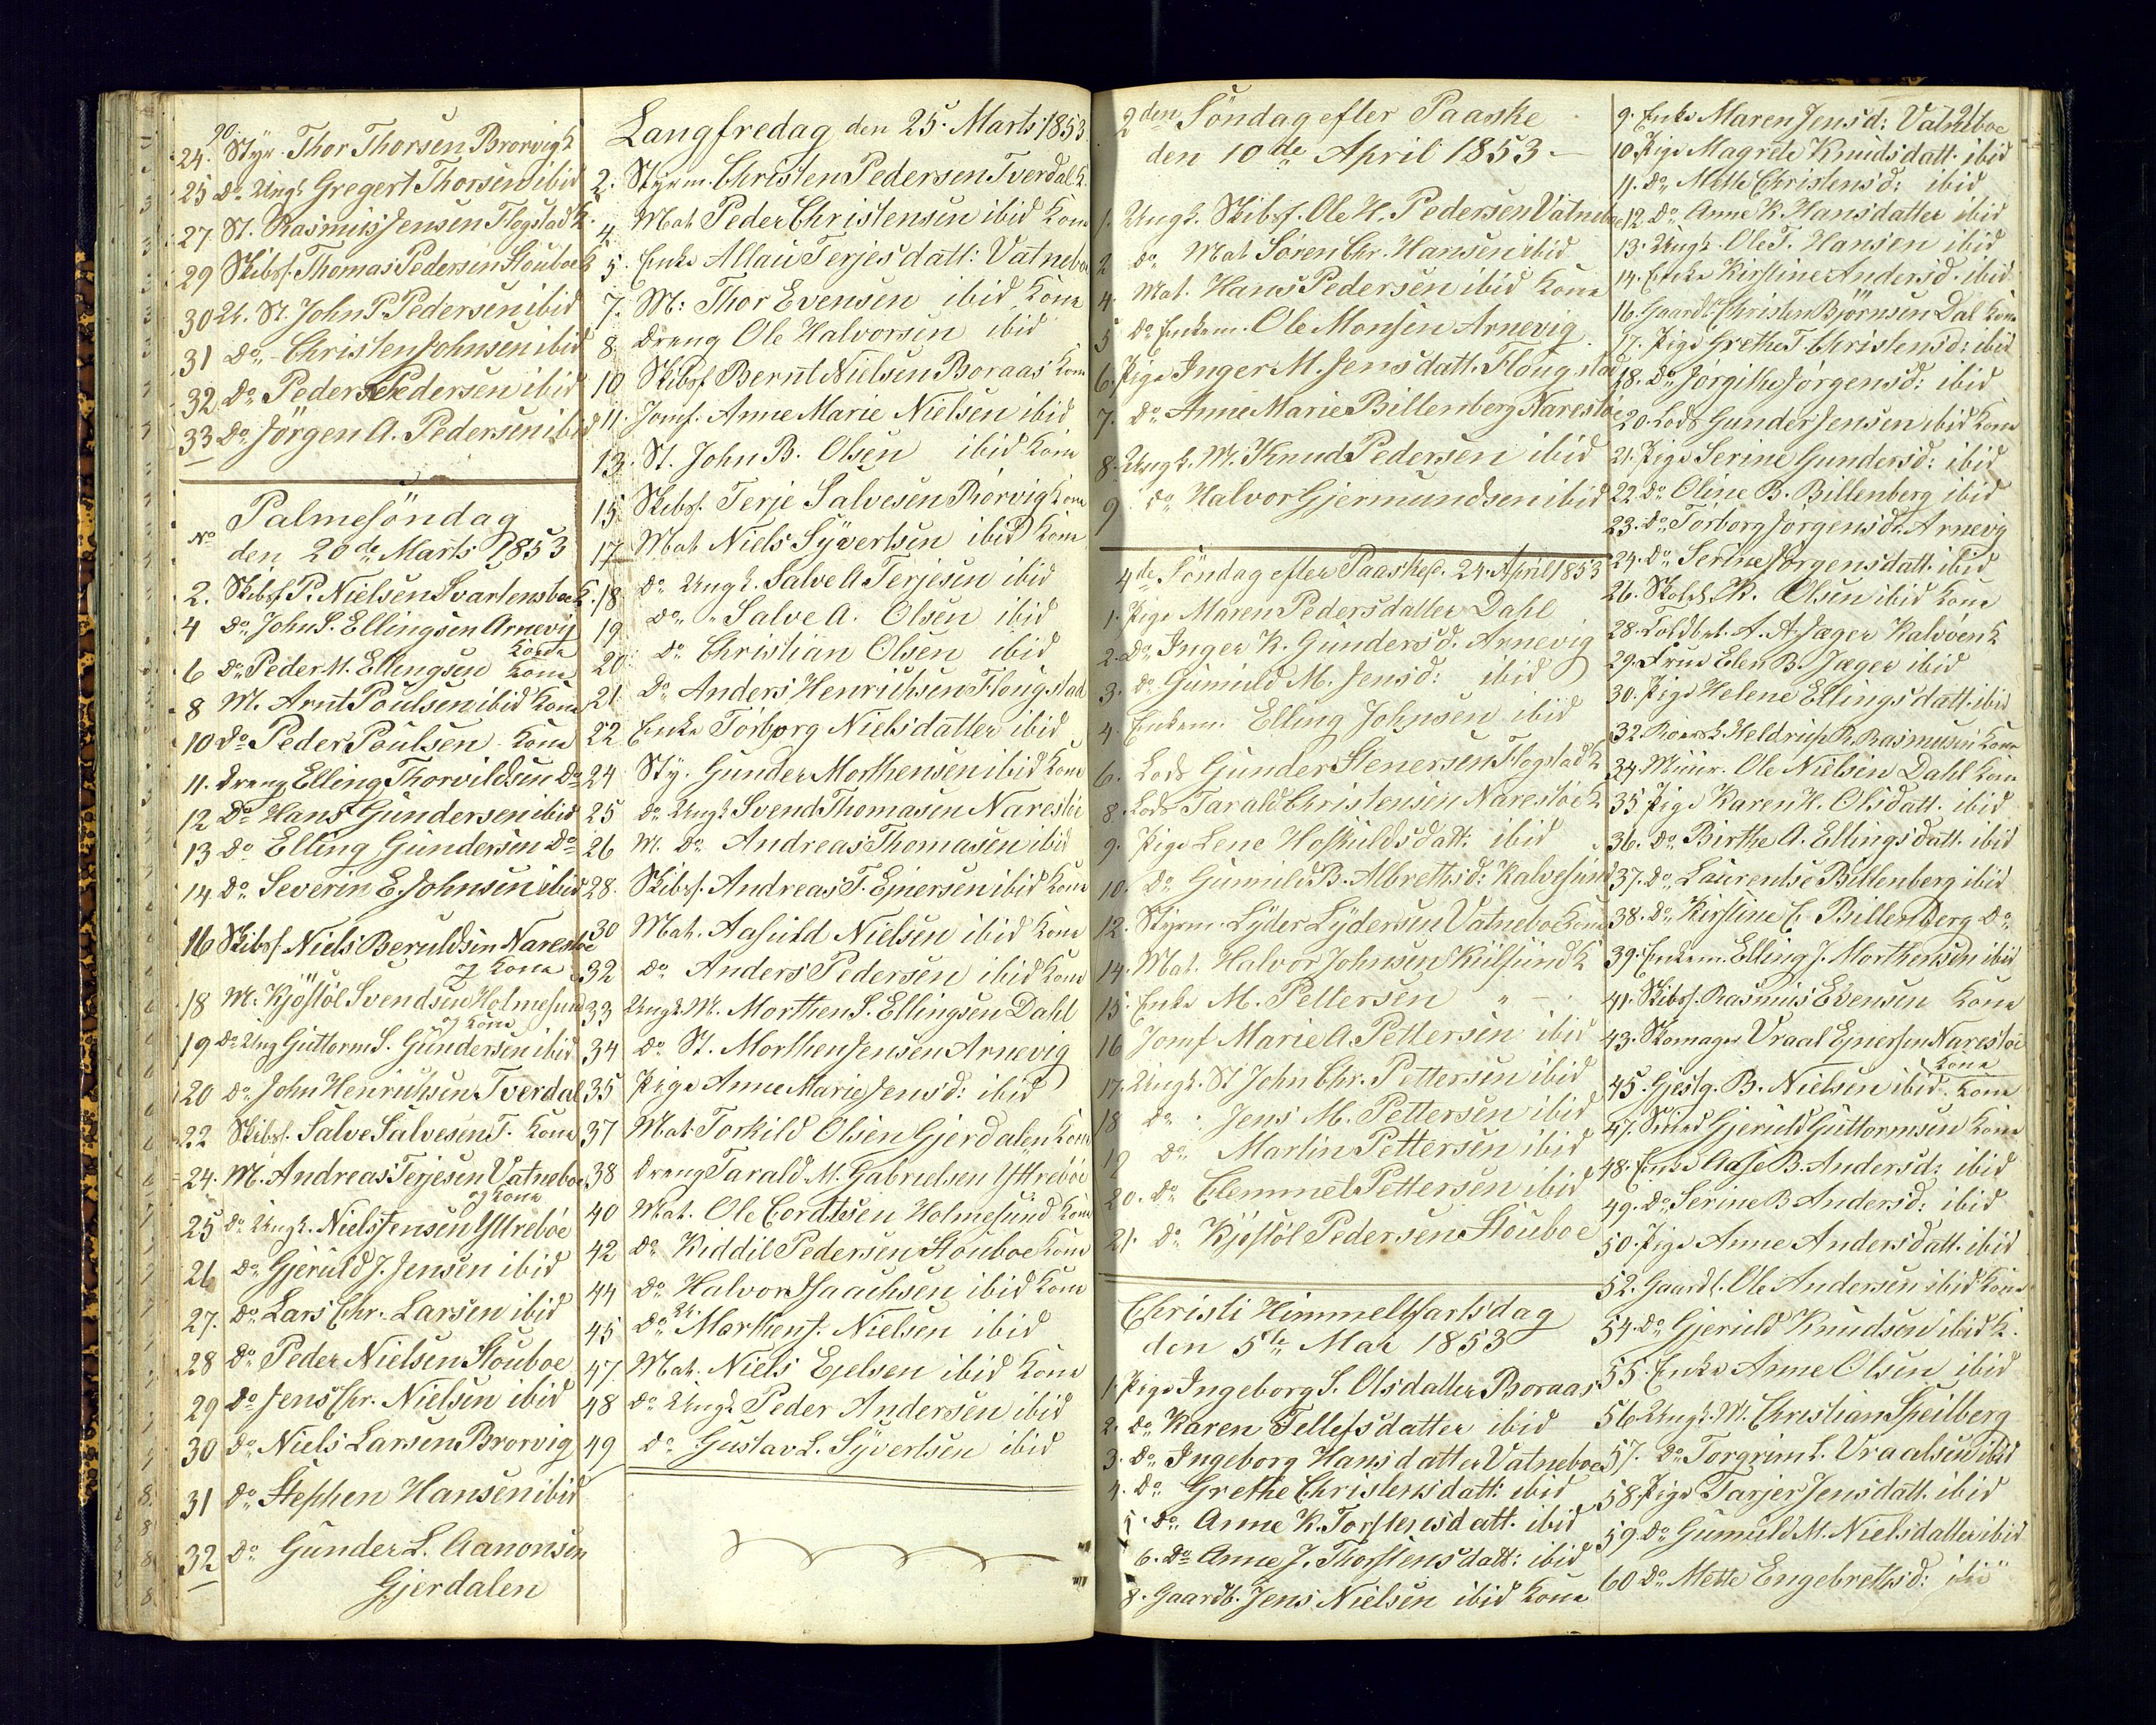 20
24. Styr. Thor Thorsen Brorvig K
25 Do Ungk Gregert Thorsen ibid
27. St. Rasmus Jensen Flogstad K.
29 Skibsf. Thomas Pedersen Stouboe K
30 U. St. John P. Pedersen ibid
31 Do - Christen Johnsen ibid
32 Do Peder Pedersen ibid
33 Do Jörgen A. Pedersen ibid
Palmesöndag
No den 20de Marts 1853
2. Skibsf P. Nielsen Svartensboe K.
4 Do John S. Ellingsen Arnevig
Kona
6 Do Peder M. Ellingsen Kona
8 M. Arnt Poulsen ibid Kona
10 Do Peder Poulsen Kona
11. Dreng Elling Thorvildsen Do
12 Do Hans Gundersen ibid
13 Do Elling Gundersen Do
14. Do Severin E. Johnsen ibid
16 Skibsf Niels Beruldsen Narestöe
og Kona
18 M. Kjöstöl Svendsen Holmesund
og Kona
19 Do Ung Guttorm S. Gundersen ibid
20 Do John Henrichsen Tverdal
22 Skibsf. Salve Salvesen T. Kona
24. M. Andreas Terjesen Vatneboe
og Kona
25 Do Ungk. Niels Jensen Yttreböe
26 Do Gjeruld J. Jensen ibid
27. Do Lars Chr. Larsen ibid
28 Do Peder Nielsen Stouboe
29 Do Jens Chr. Nielsen ibid
30 Do Niels Larsen Brorvig
31 Do Stephen Hansen ibid
32 Do Gunder L. Aanonsen
Gjerdalen
Langfredag den 25. Marts 1853
2. Styrm. Christen Pedersen Tverdal K.
4. Mat Peder Christensen ibid Kona
5. Enke Allau Terjesdatt: Vatneboe
7. M: Thor Evensen ibid Kona
8 Dreng Ole Halvorsen ibid
10 Skibsf Bernt Nielsen Boraas Kona
11. Jomf. Anne Marie Nielsen ibid
13. St. John B. Olsen ibid Kona
15 Skibsf. Terje Salvesen Rörvig Kona
17 Mat Niels Syvertsen ibid Kona
18 Do Ungk. Salve A Terjesen ibid
19 Do " Salve A. Olsen ibid
20 Do Christian Olsen ibid
21 Do Anders Henrichsen Flougstad
22 Enke Torborg Nielsdatter ibid
24 Sty. Gunder Morthensen ibid Kona
25 Do Ungk Svend Thomasen Narestöe
26 M. Do Andreas Thomasen ibid
28. Skibsf. Andreas T. Ejnersen ibid Kona
30 Mat. Aasuld Nielsen ibid Kona
32 Do Anders Pedersen ibid Kona
33 Ungk M. Morthen S. Ellingsen Dahl
34 Do St. Morthen Jensen Arnevig
35 Pige Anne Marie Jensd: ibid
37 Mat Torkild Olsen Gjerdalen Kona
38 Dreng Tarald M. Gabrielsen Yttreböe
40 Mat. Ole Cordtsen Holmesund Kona
42 Do Kiddil Pedersen Stouboe Kona
44 Do Halvor Isaachsen ibid Kona
45 Do U. Morthen J. Nielsen ibid
47 Mat. Niels Ejelsen ibid Kona
48 Do Ungk Peder Andersen ibid
49 Do Gustav L. Syvertsen ibid
2den Söndag efter Paaske
den 10de April 1853 -
1. Ungk. Skibsf. Ole H. Pedersen Vatneboe
2 Do Mat Sören Chr. Hansen ibid
4. Mat. Hans Pedersen ibid Kona
5 Do Enkem. Ole Monsen Arnevig
6. Pige Inger M. Jensdatt. Flougstad
7. Do Anne Marie Billenberg Narestöe
8. Ungk. M. Knud Pedersen ibid
9 Do Halvor Gjermundsen ibid
4de Söndag efter Paaske d. 24. April 1853
1. Pige Maren Pedersdatter Dahl
2. Do Inger K. Gundersd. Arnevig
3. Do Gunuld M. Jensd: ibid
4. Enkem. Elling Johnsen ibid
6. Lods Gunder Stenersen Flogstad K
8. Lods Tarald Christensen Narestöe K
9. Pige Lene Hoskuldsdatt: ibid
10. Do Gunuld B. Albrethsd: Kalvesund
12. Styrm. Lyder Lydersen Vatneboe Kona
14. Mat. Halvor Johnsen Kiilsund K
15. Enke M. Pettersen " -
16 Jomf Marie A. Pettersen ibid
17. Ungk. St John Chr. Pettersen ibid
18 Do : Jens M. Pettersen ibid
19 Do Martin Pettersen ibid
20. Do Clemmet Pettersen ibid
21. Do Kjöstöl Pedersen Stouboe
Christi Himmelfartsdag
den 5te Mai 1853
1. Pige Ingeborg S. Olsdatter Boraas
2. Do Karen Tellefsdatter ibid
3. Do Ingeborg Hansdatter Vatneboe
4. Do Grethe Christensdatt: ibid
5. Do Anne K. Torstensdatt. ibid
6. Do Anne J. Thorstensdatt: ibid
8. Gaardb. Jens Nielsen ibid Kona
21
9. Enke Maren Jensd: Vatneboe
10. Pige Magrete Knudsdatt. ibid
11. Do Mette Christensd: ibid
12. Do Anne K. Hansdatter ibid
13. Ungk. Ole T. Hansen ibid
14. Enke Kirstine Andersd. ibid
16. Gaardb. Christen Björnsen Dal Kona
17. Pige Grethe T. Christensd: ibid
18. Do Jörgithe Jörgensd: ibid
20. Lods Gunder Jensen ibid Kona
21. Pige Serine Gundersd: ibid
22 Do Oline B. Billenberg ibid
23. Do Torborg Jörgensd. Arnevig
24. Do Serine Jörgensdatt. ibid
26. Skoleh. K. Olsen ibid Kona
28. Toldbet. A. A. Jæger Kalvöen K
29. Frue Elen B. Jæger ibid
30. Pige Helene Ellingsdatt. ibid
32. Heldrup R. Rasmusen Kona
34. Muur. Ole Nielsen Dahl Kona
35 Pige Karen H. Olsdatt. ibid
36. Do Birthe A. Ellingsdatt. ibid
37. Do Laurentse Billenberg ibid
38. Do Kirstine C. Billenberg Do
39. Enkem. Elling J. Morthensen ibid
41. Skibsf. Rasmus Evensen Kona
43. Skomager Vraal Ejnersen Narestöe
Kona
45. Gjestg. B. Nielsen ibid Kona
47. Smed Gjeruld Guttormsen Kona
48. Enke Aase B. Andersd: ibid
49. Do Serine B Andersd: ibid
50. Pige Anne Andersdatt. ibid
52. Gaardb. Ole Andersen ibid Kona
54. Do Gjeruld Knudsen ibid K.
55. Enke Anne Olsen ibid
56. Ungk. M. Christian Speilberg
57. Do Torgrim L. Vraalsen ibid
58. Pige Tarjer Jensdatt. ibid
59. Do Gunuld M. Nielsdatter ibid
60 Do Mette Engebrethsd: ibid